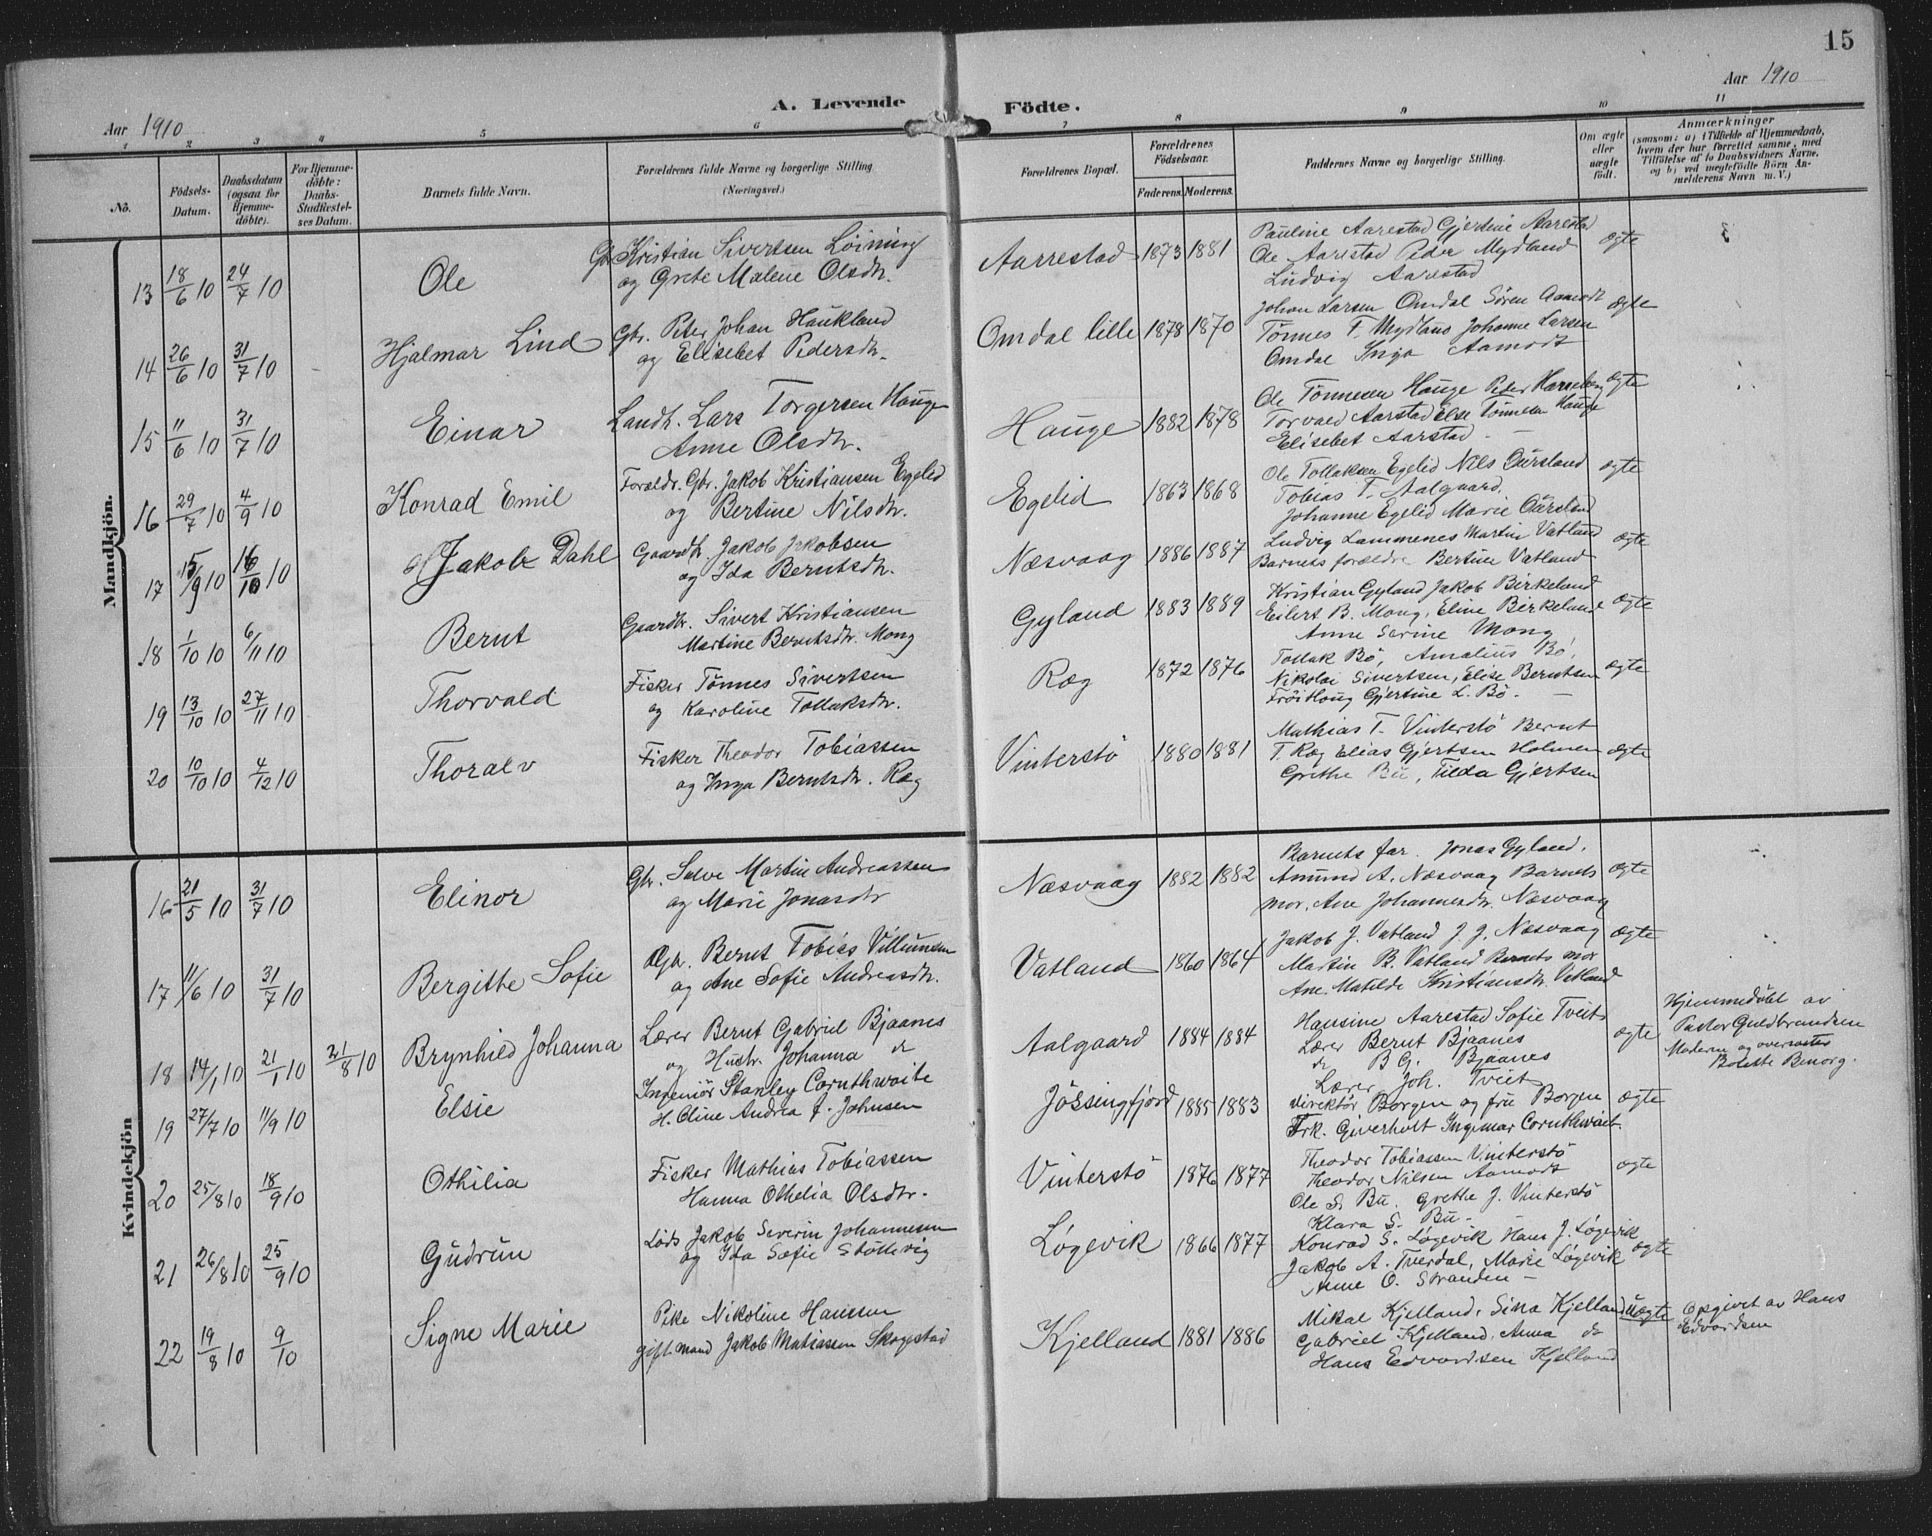 15
Aar 1910
A. Levende
Födte.
Aar 1910
1 2 3 4 5 6 7 8 9 10 11
No.
Födsels-Datum.
Daabsdatum (ogsaa for Hjemme-döbte).
For Hjemme-döbte: Daabs-Stadfæstel-ses Datum.
Barnets fulde Navn.
Forældrenes fulde Navne og borgerlige Stilling
(Næringsvei.)
Forældrenes Bopæl.
Forældrenes Födselsaar.
Faderens. Moderens.
Faddernes Navne og borgerlig Stilling.
Om ægte eller uægte födt.
Anmærkninger
(saasom: a) i Tilfælde af Hjemmedaab,
hvem der har forrettet samme, med
Tilföielse af to Daabsvidners Navne,
og b) ved uegtefödte Börn An-
melderens Navn m. V.)
Mandkjön.
13 18/6 10 24/7 10 Ole
Gbr Kristian Sivertsen Löining
og Grete Malene Olsdtr.
Aarrestad 1873 1881
Pauline Aarestad Gjertine Aarestad
Ole Aarestad Peder Mydland
Ludvig Aarestad
ægte
14 26/6 10 31/7 10 Hjalmar Lind
Gbr. Peter Johan Haukland
og Elisebet Pedersdtr.
Omdal lille 1878 1870
Johan Larsen Omdal Sören Aamodt
Tönnes T. Mydland Johanne Larsen
Omdal Inga Aamodt
ægte
15 11/6 10 31/7 10 Einar
Landh. Lars Torgersen Hauge
Anne Olsdtr.
Hauge 1882 1878
Ole Tönnesen Hauge Peder
Torvald Aarstad Else Tönnesen Hauge
Elisebet Aarstad
ægte
16 29/7 10 4/9 10 Konrad Emil
Foreldr. Gbr. Jakob Kristiansen Egelid
og Bertine Nilsdtr.
Egelid 1863 1868
Ole Tollaksen Egelid Nils Oursland
Tobias T. Aalgaard.
Johanne Egelid Marie Oursland
ægte
17 15/9 10 16/10 10 Jakob Dahl
Gaardb. Jakob Jakobsen
og Ida Berntsdtr.
Næsvaag 1886 1887
Ludvig Lammenes Martin Vatland
Barnets forældre Bertine Vatland
ægte
18 1/10 10 6/11 10 Bernt
Gaardbr. Sivert Kristiansen
Martine Berntsdtr. Mong
Gyland 1883 1889
Kristian Gyland Jakob Birkeland
Eilert B. Mong, Eline Birkeland
Anne Serine Mong
ægte
19 13/10 10 27/11 10 Thorvald
Fisker Tönnes Sivertsen
og Karoline Tollaksdtr.
Ræg 1872 1876
Tollak Bö, Amalius Bö,
Nikolai Sivertsen, Elise Berntsen
Gjertine L. Bö.
ægte
20 10/10 10 4/12 10 Thoralv
Fisker Theodor Tobiassen
og Inga Berntsdtr. Ræg
Vinterstö 1880 1881
Mathias T. Vinterstö Bernt
T. Ræg Elias Gjertsen Holmen
Grethe Bu, Tilda Gjertsen
ægte
Kvindekjön
16 21/5 10 31/7 10 Elinor
Gbr. Salve Martin Andreassen
og Marie Jonasdtr
Næsvaag 1882 1882
Barnets far. Jonas Gyland.
Amund A. Næsvaag Barnets
mor. Ane Johannesdtr. Næsvaag
ægte
17 11/6 10 31/7 10 Bergitte Sofie
Gbr. Bernt Tobias Villumsen
og Ane Sofie Andreasdtr.
Vatland 1860 1864
Jakob J. Vatland J. J. Næsvaag
Martin B. Vatland Barnets mor
Ane Matilde Kristiansdtr. Vatland
ægte
18 14/1 10 21/1 10 21/8 10 Brynhild Johanna
Lærer Bernt Gabriel Bjaanes
og Hustr. Johanna do
Aalgaard 1884 1884
Hansine Aarestad Sofie Tveit
Lærer Bernt Bjaanes
do B G. Bjaanes
Lærer Joh. Tveit
ægte
Hjemmedöbt av
Pastor Guldbrandsen
Moderen og
19 27/7 10 11/9 10 Elsie
Ingeniör Stanley Cornthwaite
H. Cline Andrea J. Johnsen
Jössingfjord 1885 1883
direktör Borgen og fru Borgen
Frk. Giverholt Ingemar Cornthwait.
ægte
20 25/8 10 18/9 10 Othilia
Fisker Mathias Tobiassen
Hanna Othelia Olsdtr.
Vinterstö 1876 1877
Theodor Tobiassen Vinterstö
Theodor Nilsen Aamodt
Ole S. Bu. Grethe J. Vinterstö
Klara S. Bu
ægte
21 26/8 10 25/9 10 Gudrun
Lods Jakob Severin Johannesen
og Ida Sofie Stöllevig
Løgevik 1866 1877
Konrad S. Løgevik Hans J. Løgevik
Jakob A. Tverdal, Marie Løgevik
Anne O. Stranden
ægte
22 19/8 10 9/10 Signe Marie
Pike Nikoline Hansen
gift mand Jakob Matiassen Skogestad
Kjelland 1881 1886
Mikal Kjelland, Sina Kjelland
Gabriel Kjelland, Anna do
Hans Edvardsen Kjelland
uægte
Opgivet av Hans
Edvardsen